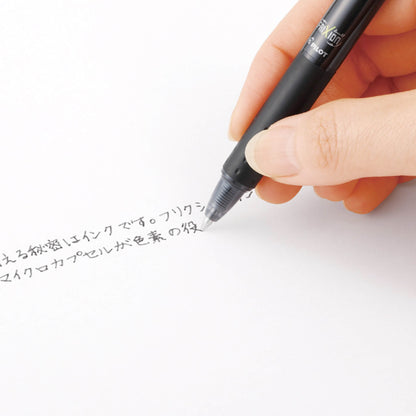 FRIXION
PILOT
える秘密はインクです。フリクシ
マイクロカプセルが色素の役